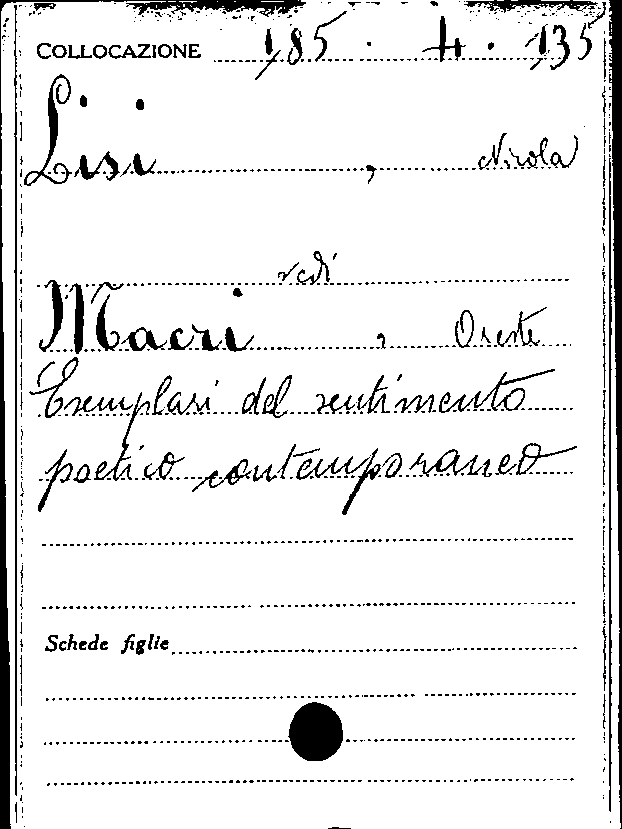 COLLOCAZIONE 185 . 4 . 135
Lisi , Nicola
vedi
Macrì , Oreste
Esemplari del sentimento
poetico contemporaneo
Schede figlie